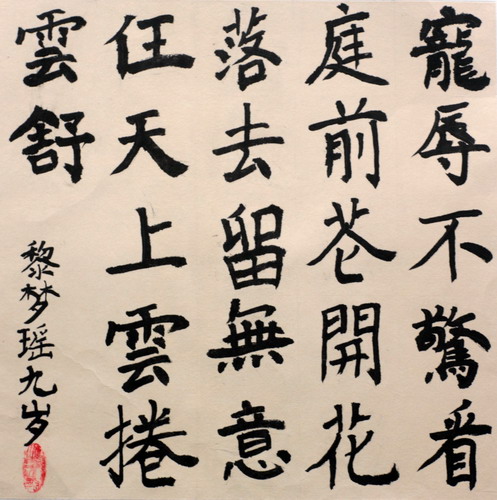 寵辱不驚看
庭前花開花
落去留無意
任天上雲捲
雲舒
黎梦瑶九岁